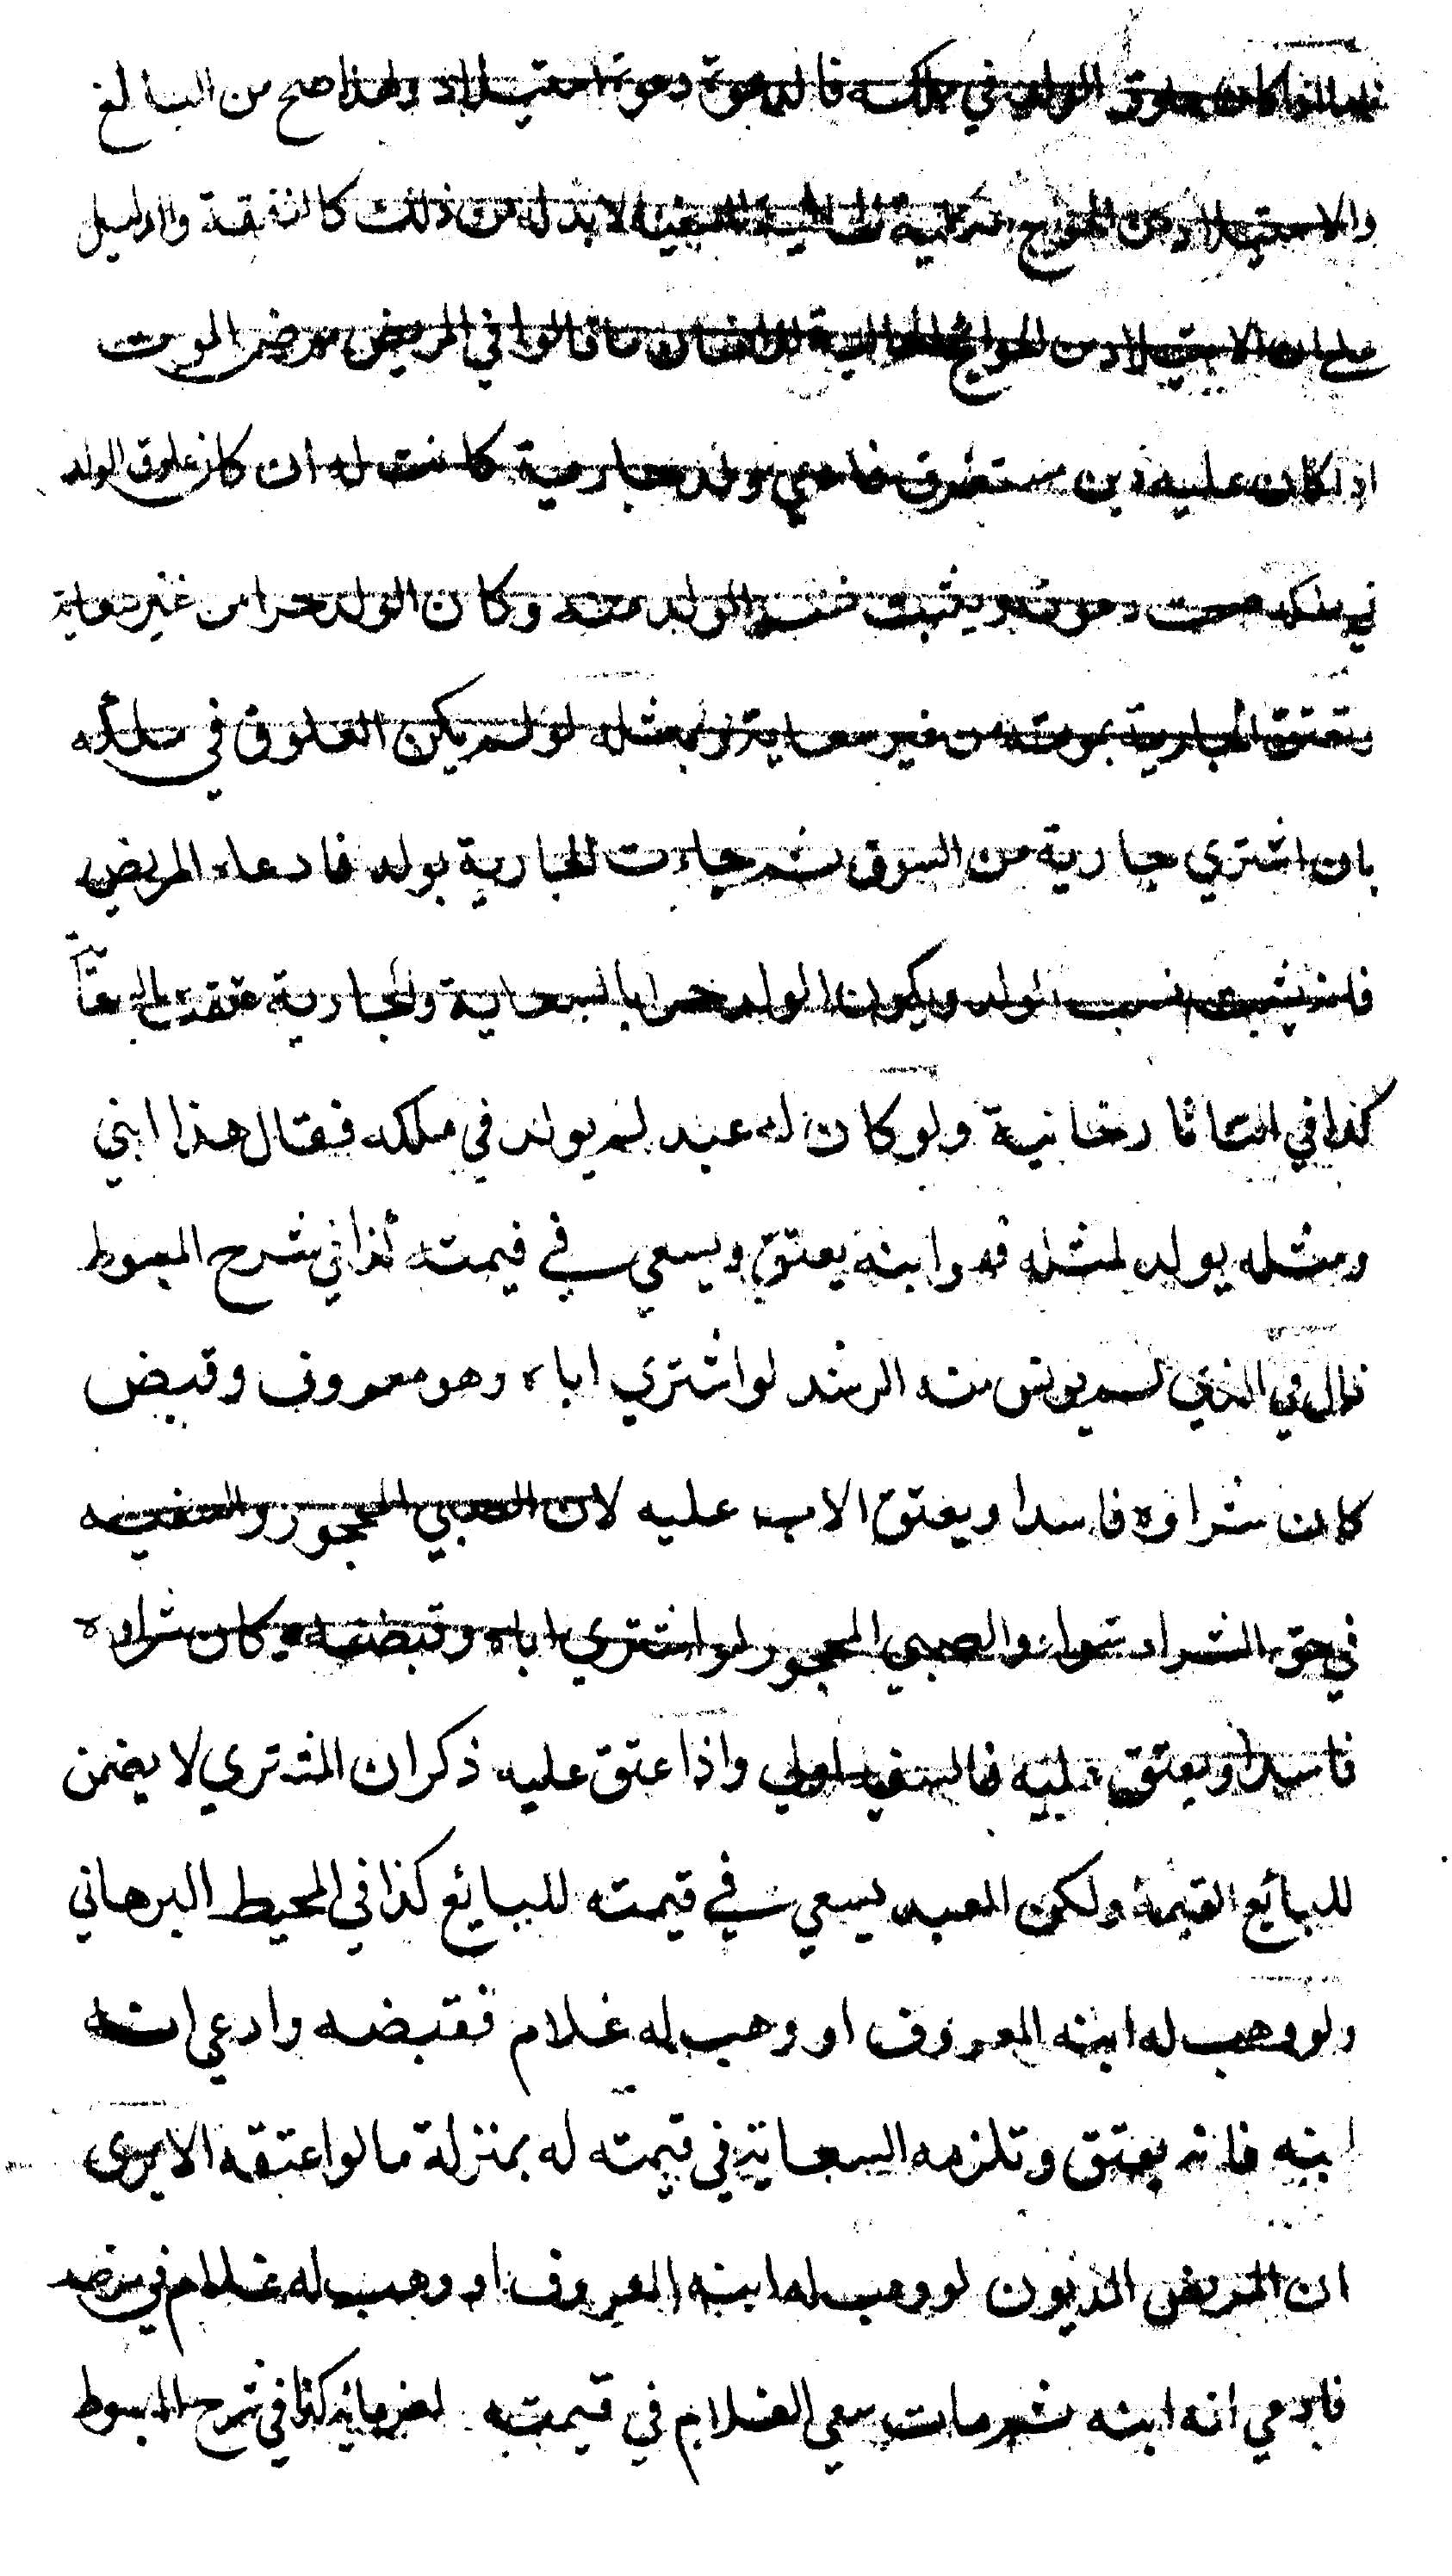 علوق الولد في ملكه فالدعوة دعوة استيلاد ولهذا صح من البالغ
والاستيلاد من الحوائج لا بد له من ذلك كالنفقة والدليل
على ان الاستيلاد من الحوائج ما قالوا في المريض مرض الموت
اذا كان عليه دين مستغرق فادعى ولد جارية كانت له ان كان علوق الولد
في ملكه صحت دعوته ويثبت نسب الولد منه وكان الولد حرا من غير سعاية
وتعتق الجارية بموته من غير سعاية وبمثله لو لم يكن العلوق في ملكه
بان اشتري جارية من السوق ثم جاءت الجارية بولد فادعاه المريض
فانه يثبت نسب الولد ويكون الولد حرا بالسعاية والجارية
كذا في التاتارخانية ولو كان له عبد لم يولد في ملكه فقال هذا ابني
ومثله يولد لمثله فهو ابنه يعتق ويسعي في قيمته كذا في شرح المبسوط
قال في الذي لم يونس منه الرشد لو اشتري اباه وهو معروف وقبض
كان شراؤه فاسدا ويعتق الاب عليه لان الصبي المحجور والسفيه
في حق الشراء سواء والصبي المحجور لو اشتري اباه وقبضه كان شراوه
فاسدا ويعتق عليه فالسفيه اولي واذا عتق عليه ذكر ان المشتري لا يضمن
للبائع القيمة ولكن العبد يسعي في قيمته للبايع كذا في المحيط البرهاني
ولو وهب له ابنه المعروف او وهب له غلام فقبضه وادعي انه
ابنه فانه يعتق وتلزمه السعاية في قيمته له بمنزلة ما لو اعتقه الا يرى
ان المريض المديون لو وهب له ابنه المعروف او وهب له غلام في مرضه
فادعي انه ابنه ثم مات سعى الغلام في قيمته لغرمائه كذا في شرح المبسوط